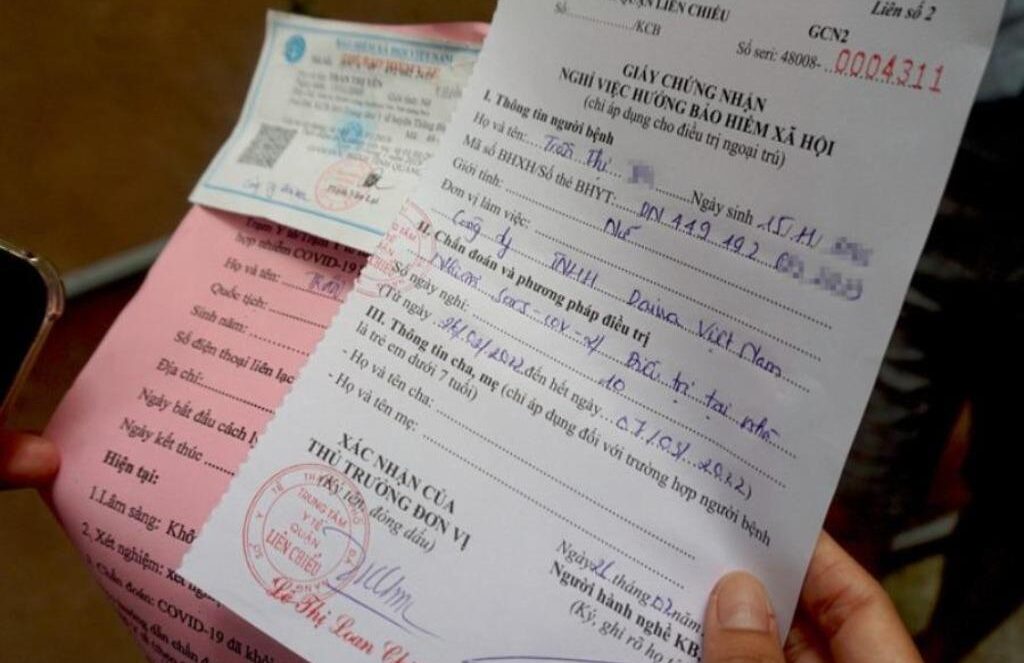 QUẬN LIÊN CHIỂU
Số:............/KCB
Liên số 2
GCN2
Số seri: 48008-..0004311
GIẤY CHỨNG NHẬN
NGHỈ VIỆC HƯỞNG BẢO HIỂM XÃ HỘI
(chỉ áp dụng cho điều trị ngoại trú)
I. Thông tin người bệnh
Họ và tên: Trần Thị ....... Ngày sinh 15/11/
Mã số BHXH/Số thẻ BHYT: DN 449 192
Giới tính: Nữ
Đơn vị làm việc: Công ty TNHH Daiwa Việt Nam
II. Chẩn đoán và phương pháp điều trị
Nhiễm Sars-cov-2/ Điều trị tại nhà
Số ngày nghỉ: 10
(Từ ngày 26/02/2022 đến hết ngày 07/03/2022)
III. Thông tin cha, mẹ (chỉ áp dụng đối với trường hợp người bệnh
là trẻ em dưới 7 tuổi)
- Họ và tên cha:
- Họ và tên mẹ:
XÁC NHẬN CỦA
THỦ TRƯỞNG ĐƠN VỊ
(Ký tên, đóng dấu)
TRUNG TÂM
Y TẾ
QUẬN
LIÊN CHIỂU
Lê Thị Loan
Ngày 26 tháng 02 năm
Người hành nghề KB,
(Ký, ghi rõ họ
BẢO HIỂM XÃ HỘI VIỆT NAM
TRẦN THỊ YẾN
hợp nhiễm COVID-19
Họ và tên:
Quốc tịch:
Sinh năm:
Số điện thoại liên lạc
Địa chỉ:
Ngày bắt đầu cách
Ngày kết thúc
Hiện tại:
1.Lâm sàng: Khô
2. Xét nghiệm: xét
Chẩn đoán: COVID-19 đã